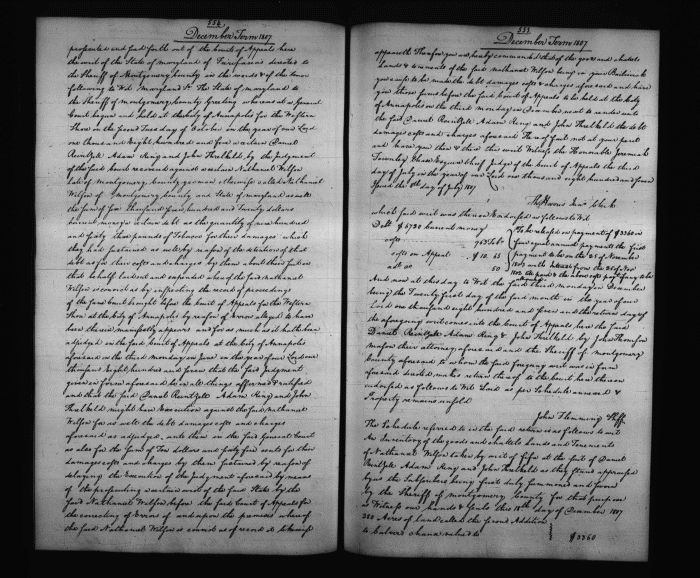 554
December Term 1807
prosecuted and sued forth out of the Court of Appeals here
the writ of the State of Maryland of Fieri facias directed to
the Sheriff of Montgomery County in the words & of the tenor
following to Wit Maryland Sc. The State of Maryland to
the Sheriff of Montgomery County Greeting whereas at a General
Court begun and held at the City of Annapolis for the Western
Shore on the second Tuesday of October in the year of our Lord
one thousand Eight hundred and five a certain Daniel
Reintzle Adam King and John Threlkeld by the Judgment
of the said Court recovered against a certain Nathaniel Wilson
late of Montgomery County yeoman otherwise called Nathaniel
Wilson of Montgomery County and State of Maryland as well
the sum of
current money a certain debt as the quantity of nine hundred
and sixty three pounds of Tobacco for their damages which
they had sustained as well by reason of the detention of that
debt as for their costs and charges by them about their suit in
that behalf laid out and expended whereof the said Nathaniel
Wilson is convict as by inspecting the record & proceedings
of the said Court brought before the Court of Appeals for the Western
Shore at the City of Annapolis by reason of Errors alleged to have
been therein manifestly appears and forasmuch as it hath been
adjudged in the said Court of Appeals at the City of Annapolis
aforesaid on the third monday in June in the year of our Lord one
thousand Eight hundred and seven that the said Judgment
given in form aforesaid be in all things affirmed & ratified
and that the said Daniel Reintzle Adam King and John
Threlkeld might have Execution against the said Nathaniel
Wilson for as well the debt damages costs and charges
aforesaid as adjudged unto them in the said General Court
as also for the sum of Ten dollars and sixty five cents for their
damages costs and charges by them sustained by reason of
delaying the Execution of the Judgment aforesaid by means
of the prosecuting a certain writ of the said State by the
said Nathaniel Wilson before the said Court of Appeals for
the correcting of Errors of and upon the premises whereof
the said Nathaniel Wilson is convict as of record it
555
December Term 1807
appeareth Therefore you are hereby commanded that of the goods and chattels
lands & tenements of the said Nathaniel Wilson being in your Bailiwick
you cause to be made the debt damages costs & charges aforesaid and have
you those sums before the said Court of Appeals to be held at the City
of Annapolis on the third monday in December next to render unto
the said Daniel Reintzle Adam King and John Threlkeld the debt
damages costs and charges aforesaid Hereof fail not at your peril
and have you then & there this writ Witness the Honorable Jeremiah
Townley Chase Esquire Chief Judge of the Court of Appeals the third
day of July in the year of our Lord one thousand eight hundred and seven
Issued the 8th day of July 1807
Tho Harris Junr Clerk
which said writ was thus Endorsed as follows to Wit
Debt $ 5720 current money
costs 963 lb t
costs on Appeal $ 10.65
50
To be released on payment of $3360 in
four equal annual payments the first
payment to be on the 25 of November
And now at this day to Wit the said third monday in December
being the Twenty first day of the said month in the year of our
Lord one thousand eight hundred and seven and the return day of
the aforegoing writ comes into the Court of Appeals here the said
Daniel Reintzle Adam King & John Threlkeld by John Thomson
Mason their attorney aforesaid and the Sheriff of Montgomery
County aforesaid to whom the said foregoing writ was in form
aforesaid directed makes return thereof to the Court here thereon
endorsed as follows to Wit Laid as per Schedule annexed &
Property remains unsold
John Flemming Shff.
The Schedule referred to in the said return is as follows to wit
An Inventory of the goods and chattels Lands and Tenements
of Nathaniel Wilson taken by writ of fifa at the suit of Daniel
Reintzle Adam King and John Threlkeld as they stand appraised
by us the subscribers being first duly summoned and sworn
by the Sheriff of Montgomery County for that purpose
as Witness our hands & seals this 18th day of December 1807
280 Acres of land called the second Addition
to valued to $3360